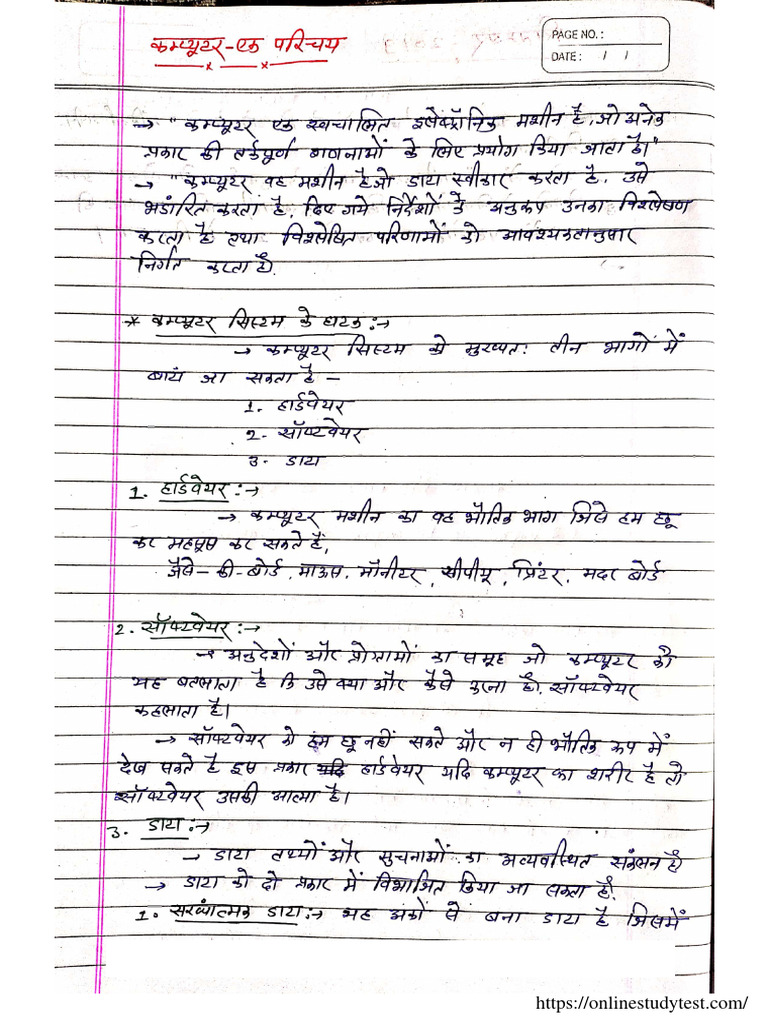 कम्प्यूटर - एक परिचय
PAGE NO. :
DATE : / /
→ "कम्प्यूटर एक स्वचालित इलेक्ट्रॉनिक मशीन है, जो अनेक
प्रकार की तर्कपूर्ण गणनाओं के लिए प्रयोग किया जाता है।"
→ "कम्प्यूटर वह मशीन है जो डाटा स्वीकार करता है, उसे
भंडारित करता है, दिए गये निर्देशों के अनुरूप उनका विश्लेषण
करता है तथा विश्लेषित परिणामों को आवश्यकतानुसार
निर्गत करता है।
* कम्प्यूटर सिस्टम के घटक :→
→ कम्प्यूटर सिस्टम को मुख्यतः तीन भागों में
बांटा जा सकता है –
1. हार्डवेयर
2. सॉफ्टवेयर
3. डाटा
1. हार्डवेयर :→
→ कम्प्यूटर मशीन का वह भौतिक भाग जिसे हम छू
कर महसूस कर सकते हैं,
जैसे – की-बोर्ड, माऊस, मॉनीटर, सीपीयू, प्रिंटर, मदर बोर्ड
2. सॉफ्टवेयर :→
→ अनुदेशों और प्रोग्रामों का समूह जो कम्प्यूटर को
यह बतलाता है कि उसे क्या और कैसे करना है। सॉफ्टवेयर
कहलाता है।
→ सॉफ्टवेयर को हम छू नहीं सकते और न ही भौतिक रूप में
देख सकते है इस प्रकार यदि हार्डवेयर यदि कम्प्यूटर का शरीर है तो
सॉफ्टवेयर उसकी आत्मा है।
3. डाटा :→
→ डाटा तथ्यों और सुचनाओं का अव्यवस्थित संकलन है
→ डाटा को दो प्रकार में विभाजित किया जा सकता है।
1. सख्यांत्मक डाटा :→ यह अंकों से बना डाटा है जिसमें
https://onlinestudytest.com/